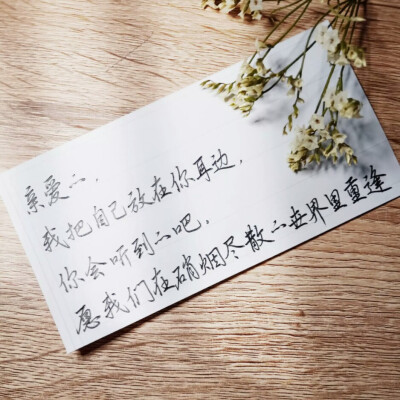 亲爱的,
我把自己放在你耳边,
你会听到的吧。
愿我们在硝烟尽散的世界里重逢